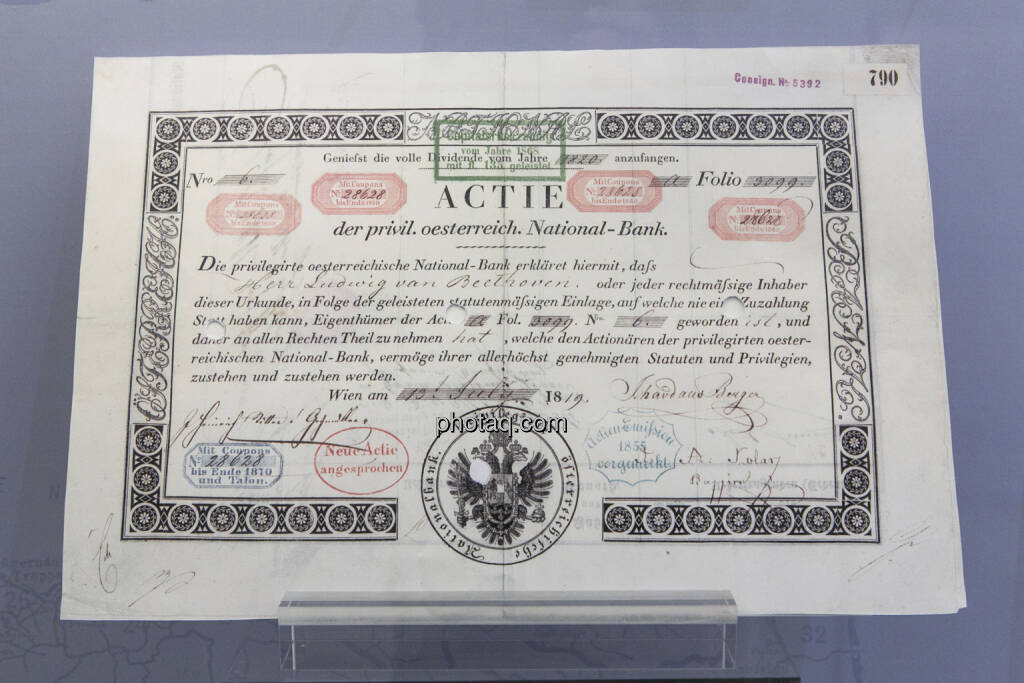 Consign. No. 5392
790
vom Jahre 1868
mit fl. 135 geleistet
Geniefst die volle Dividende vom Jahre 1820. anzufangen.
Nro 6. a Folio 3099.
Mit Coupons
No. 28628
bis Ende 1880
Mit Coupons
No. 28628
bis Ende 1880
Mit Coupons
28628
bis Ende 1880
Mit Coupons
No. 28628
ACTIE
der privil. oesterreich. National-Bank.
Die privilegirte oesterreichische National-Bank erkläret hiermit, dafs
Herr Ludwig van Beethoven. oder jeder rechtmässige Inhaber
dieser Urkunde, in Folge der geleisteten statutenmässigen Einlage, auf welche nie eine Zuzahlung
Statt haben kann, Eigenthümer der Act. a Fol. 3099. No. 6. geworden ist, und
daher an allen Rechten Theil zu nehmen hat, welche den Actionären der privilegirten oester-
reichischen National-Bank, vermöge ihrer allerhöchst genehmigten Statuten und Privilegien,
zustehen und zustehen werden.
Wien am 13t July 1819.
Berger
photaq.com
Neue Actie
angesprochen
Mit Coupons
No. 28628
bis Ende 1870
und Talon.
Actien Emission
1855
vorgemerkt
österreichische Nationalbank.